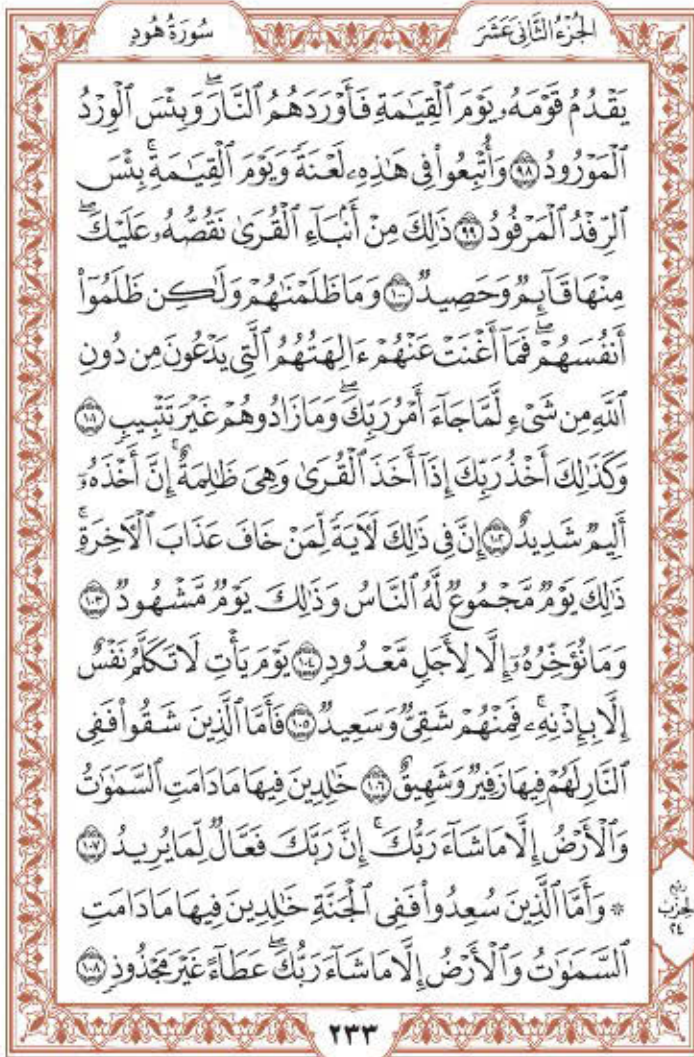 الجُزْءُ الثَّانِي عَشَرَ
سُورَةُ هُودٍ
يَقۡدُمُ قَوۡمَهُۥ يَوۡمَ ٱلۡقِيَٰمَةِ فَأَوۡرَدَهُمُ ٱلنَّارَۖ وَبِئۡسَ ٱلۡوِرۡدُ
ٱلۡمَوۡرُودُ ٩٨ وَأُتۡبِعُواْ فِي هَٰذِهِۦ لَعۡنَةٗ وَيَوۡمَ ٱلۡقِيَٰمَةِۚ بِئۡسَ
ٱلرِّفۡدُ ٱلۡمَرۡفُودُ ٩٩ ذَٰلِكَ مِنۡ أَنۢبَآءِ ٱلۡقُرَىٰ نَقُصُّهُۥ عَلَيۡكَۖ
مِنۡهَا قَآئِمٞ وَحَصِيدٞ ١٠٠ وَمَا ظَلَمۡنَٰهُمۡ وَلَٰكِن ظَلَمُوٓاْ
أَنفُسَهُمۡۖ فَمَآ أَغۡنَتۡ عَنۡهُمۡ ءَالِهَتُهُمُ ٱلَّتِي يَدۡعُونَ مِن دُونِ
ٱللَّهِ مِن شَيۡءٖ لَّمَّا جَآءَ أَمۡرُ رَبِّكَۖ وَمَا زَادُوهُمۡ غَيۡرَ تَتۡبِيبٖ ١٠١
وَكَذَٰلِكَ أَخۡذُ رَبِّكَ إِذَآ أَخَذَ ٱلۡقُرَىٰ وَهِيَ ظَٰلِمَةٌۚ إِنَّ أَخۡذَهُۥٓ
أَلِيمٞ شَدِيدٌ ١٠٢ إِنَّ فِي ذَٰلِكَ لَأٓيَةٗ لِّمَنۡ خَافَ عَذَابَ ٱلۡأٓخِرَةِۚ
ذَٰلِكَ يَوۡمٞ مَّجۡمُوعٞ لَّهُ ٱلنَّاسُ وَذَٰلِكَ يَوۡمٞ مَّشۡهُودٞ ١٠٣
وَمَا نُؤَخِّرُهُۥٓ إِلَّا لِأَجَلٖ مَّعۡدُودٖ ١٠٤ يَوۡمَ يَأۡتِ لَا تَكَلَّمُ نَفۡسٌ
إِلَّا بِإِذۡنِهِۦۚ فَمِنۡهُمۡ شَقِيّٞ وَسَعِيدٞ ١٠٥ فَأَمَّا ٱلَّذِينَ شَقُواْ فَفِي
ٱلنَّارِ لَهُمۡ فِيهَا زَفِيرٞ وَشَهِيقٌ ١٠٦ خَٰلِدِينَ فِيهَا مَا دَامَتِ ٱلسَّمَٰوَٰتُ
وَٱلۡأَرۡضُ إِلَّا مَا شَآءَ رَبُّكَۚ إِنَّ رَبَّكَ فَعَّالٞ لِّمَا يُرِيدُ ١٠٧
۞ وَأَمَّا ٱلَّذِينَ سُعِدُواْ فَفِي ٱلۡجَنَّةِ خَٰلِدِينَ فِيهَا مَا دَامَتِ
ٱلسَّمَٰوَٰتُ وَٱلۡأَرۡضُ إِلَّا مَا شَآءَ رَبُّكَۖ عَطَآءً غَيۡرَ مَجۡذُوذٖ ١٠٨
ربع
الحزب
٢٤
٢٣٣